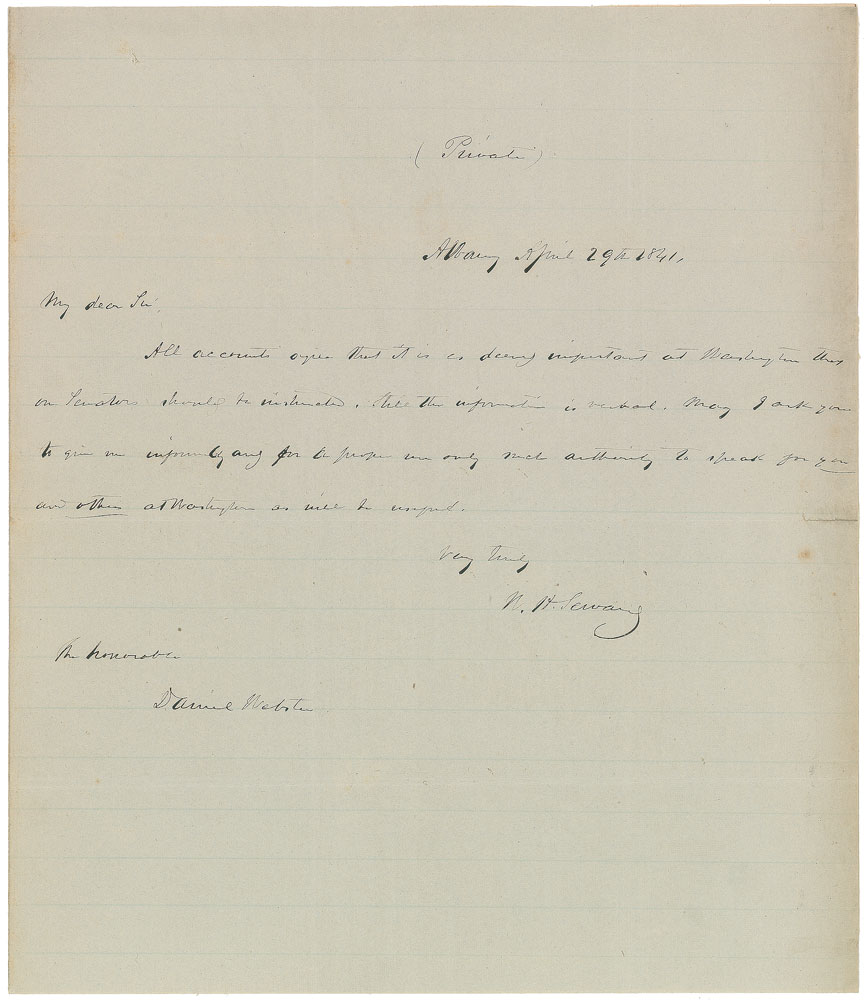 (Private)
Albany April 29th 1841.
My dear Sir,
All accounts agree that it is as deemed important at Washington that
our Senators should be instructed. All the information is verbal. May I ask you
to give me informally and for a proper use only such authority to speak for you
and others at Washington as will be useful.
Very truly
W. H. Seward
The honorable
Daniel Webster